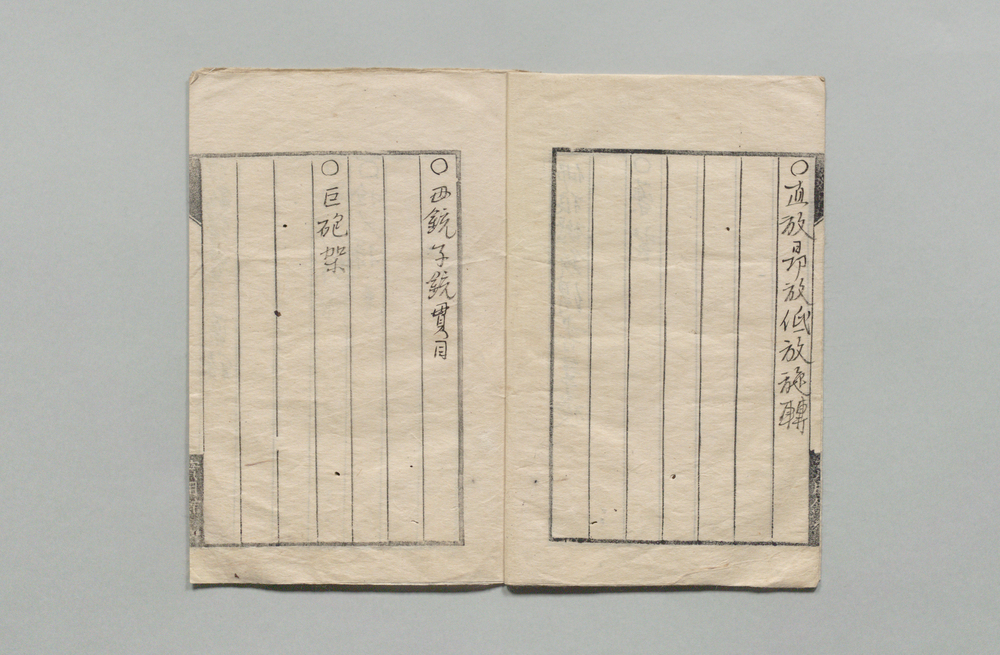 ○直放昂放低放旋轉
○母銃子銃貫目
○巨砲架